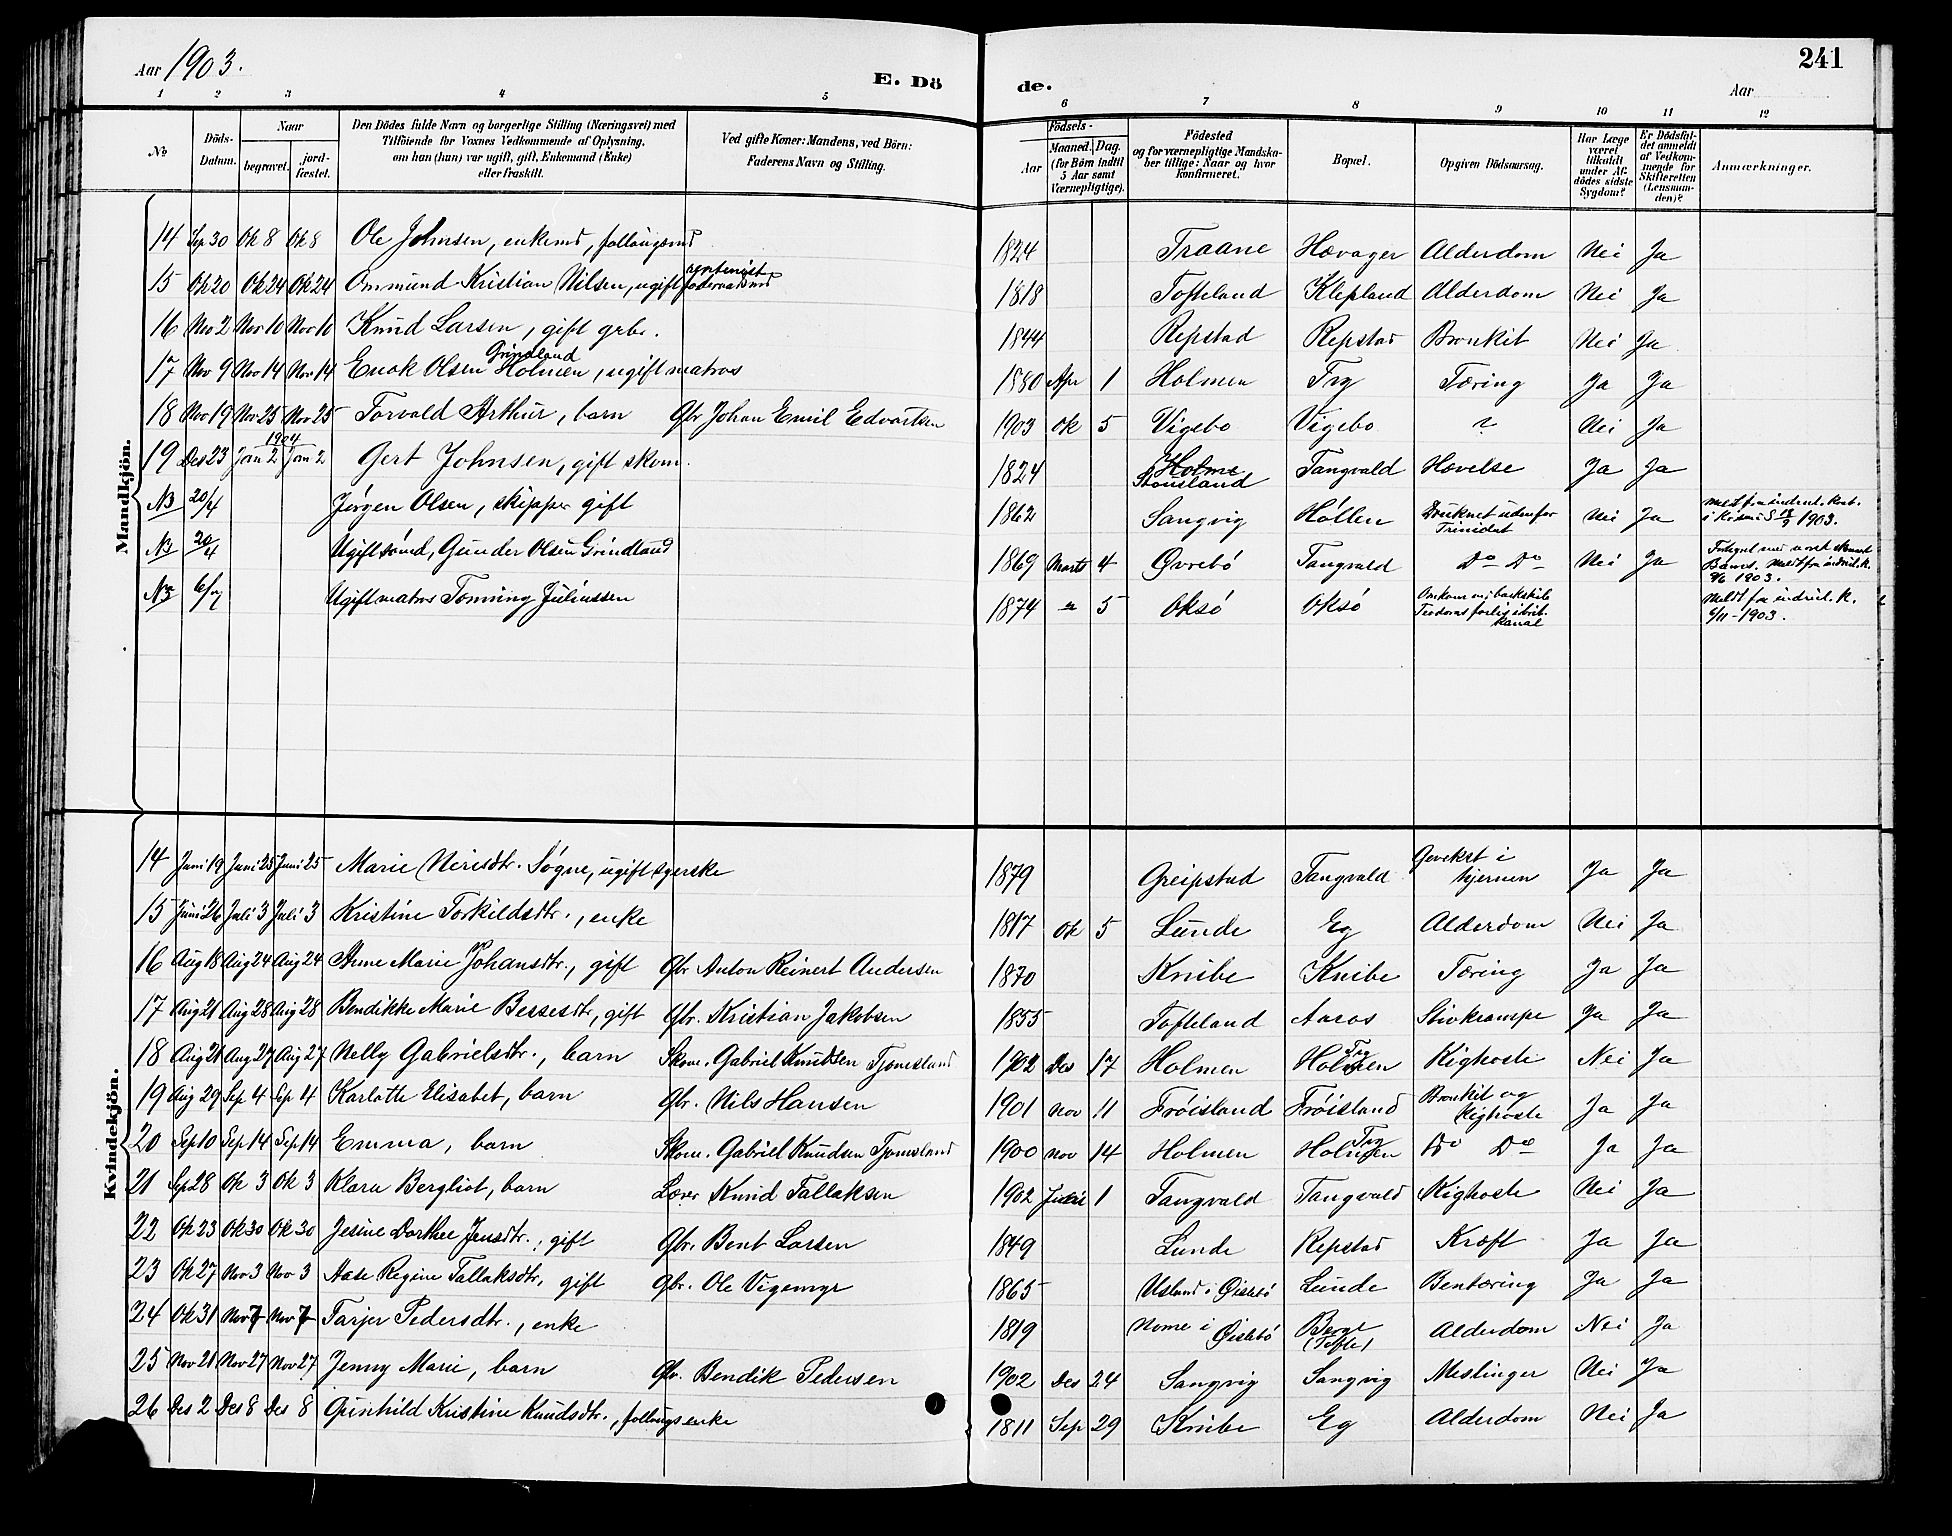 Aar 1903.
E. Dö de.
Aar
241
1 2 3 4 5 6 7 8 9 10 11 12
No
Döds-Datum.
Naar
begravet.
jord-fæstet.
Den Dödes fulde Navn og borgerlige Stilling (Næringsvei) med
Tilföiende for Voxnes Vedkommende af Oplysning,
om han (hun) var ugift, gift, Enkemand (Enke)
eller fraskilt.
Ved gifte Koner: Mandens, ved Börn:
Faderens Navn og Stilling.
Födsels-
Aar
Maaned. Dag.
(for Börn indtil
5 Aar samt
Værnepligtige).
Födested
og for værnepligtige Mandska-
ber tillige: Naar og hvor
konfirmeret.
Bopæl.
Opgiven Dödsaarsag.
Har Læge
været
tilkaldt
under Af-
dödes sidste
Sygdom?
Er Dödsfal-
det anmeldt
af Vedkom-
mende for
Skifteretten
(Lensman-
den)?
Anmærkninger.
Mandkjön.
14 Sep 30 Ok 8 Ok 8 Ole Johnsen, enkemd, follaugsmd 1824 Traane Hævager Alderdom Nei Ja
15 Ok 20 Ok 24 Ok 24 Ommund Kristian Nilsen, ugift foderaadsmd 1818 Tofteland Klepland Alderdom Nei Ja
16 Nov 2 Nov 10 Nov 10 Knud Larsen, gift grbr. 1844 Repstad Repstad Bronkit Nei Ja
Grindland
17 Nov 9 Nov 14 Nov 14 Enok Olsen Holmen, ugift matros 1880 Apr 1 Holmen Try Tæring Ja Ja
18 Nov 19 Nov 25 Nov 25 Torvald Arthur, barn Gbr Johan Emil Edvartsen 1903 Ok 5 Vigebo Vigebo ? Nei Ja
1904
19 Des 23 Jan 2 Jan 2 Gert Johnsen, gift skom. 1824 Holme Stousland Tangvald Hævelse Ja Ja
NB 20/4 Jørgen Olsen, skipper gift 1862 Sangvig Høllen Druknet udenfor Trinidat Nei Ja Meldt fra indrul. kont. i Krsand 1903.
NB 20/4 Ugift sømd, Gunder Olsen Grindland 1869 Marts 4 Øvrebø Tangvald Do Do Nei Ja Forlist med norsk Meldt fra indrul. k. 1903.
NB 6/7 Ugift matros Tønning Juliussen 1874 " 5 Oksø Oksø Omkom en barkskib Teodors forlis i brit. kanal Meldt fra indrul. k. 6/11-1903.
Kvindekjön.
14 Juni 19 Juni 25 Juni 25 Marie Nerisdtr. Søgne, ugift syerske 1879 Greipstad Tangvald Gevekst i hjernen Ja Ja
15 Juni 26 Juli 3 Juli 3 Kristine Torkildsdtr., enke 1817 Ok 5 Lunde Eg Alderdom Nei Ja
16 Aug 18 Aug 24 Aug 24 Anne Marie Johansdtr., gift Gbr Anton Reinert Andersen 1870 Knibe Knibe Tæring Ja Ja
17 Aug 21 Aug 28 Aug 28 Bendikke Marie Bessesdtr, gift Gbr. Kristian Jakobsen 1855 Tofteland Aaros Stivkrampe Ja Ja
18 Aug 21 Aug 27 Aug 27 Nelly Gabrielsdtr., barn Skom. Gabriel Knudsen Tjomsland 1902 Des 17 Holmen Holmen Try Kighoste Nei Ja
19 Aug 29 Sep 4 Sep 4 Karlotte Elisabet, barn Gbr. Nils Hansen 1901 Nov 11 Frøisland Frøisland Bronkit og Kighoste Ja Ja
20 Sep 10 Sep 14 Sep 14 Emma, barn Skom. Gabriel Knudsen Tjomsland 1900 Nov 14 Holmen Holmen Try Do Do Ja Ja
21 Sep 28 Ok 3 Ok 3 Klara Bergliot, barn Lærer Knud Tallaksen 1902 1 Tangvald Tangvald Kighoste Nei Ja
22 Ok 23 Ok 30 Ok 30 Jesine Dorthee Jensdtr., gift Gbr. Bent Larsen 1849 Lunde Repstad Kræft Ja Ja
23 Ok 27 Nov 3 Nov 3 Aase Regine Tallaksdtr, gift Gbr. Ole Vigemyr 1865 Usland i Øislebø Lunde Bentæring Ja Ja
24 Ok 31 Nov 7 Nov 7 Tarjer Pedersdtr., enke 1819 Nome i Øislebø Berge (Tofte) Alderdom Nei Ja
25 Nov 21 Nov 27 Nov 27 Jenny Marie, barn Gbr. Bendik Pedersen 1902 Des 24 Sangvig Sangvig Meslinger Nei Ja
26 Des 2 Des 8 Des 8 Gunhild Kristine Knudsdtr., follaugsenke 1811 Sep 29 Knibe Eg Alderdom Nei Ja